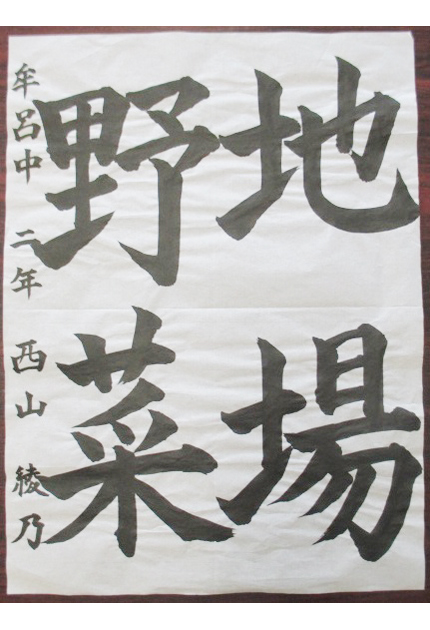 地場
野菜
牟呂中 二年 西山 綾乃